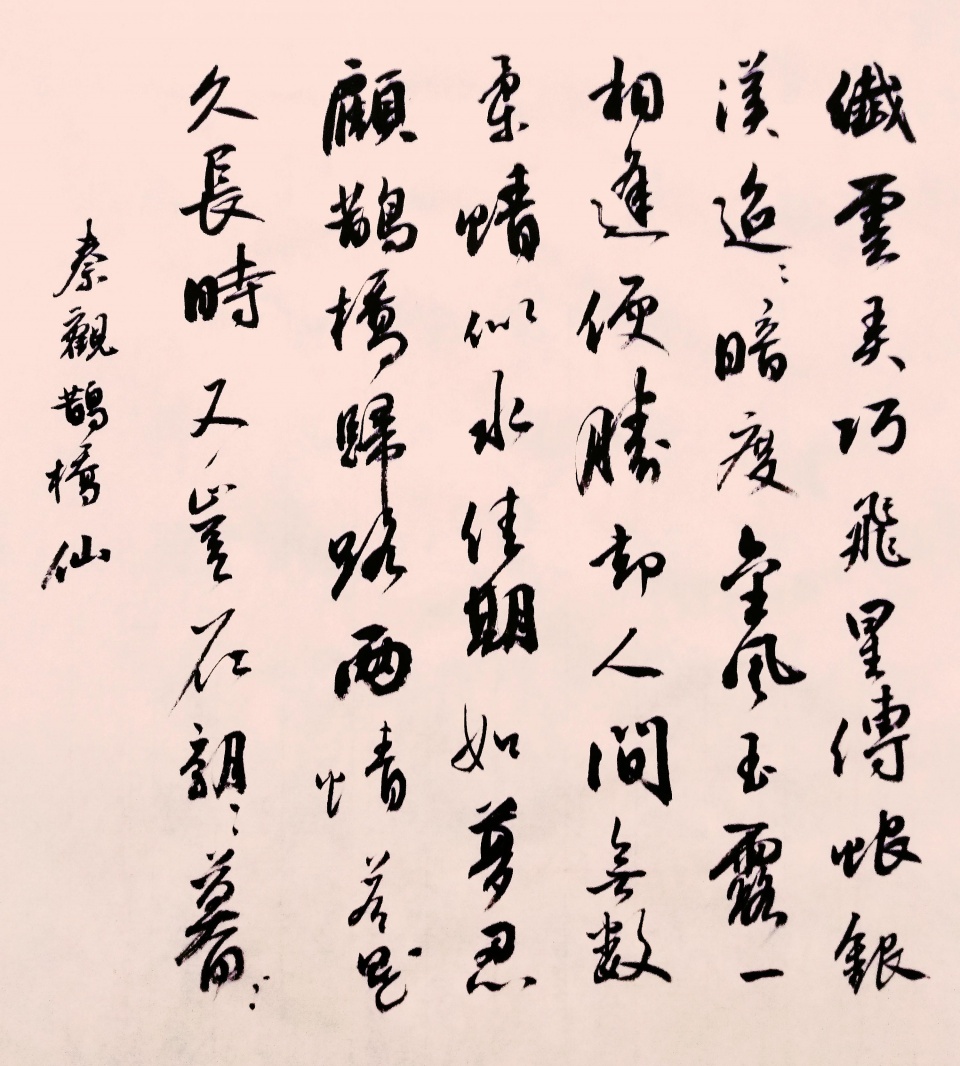 纖雲弄巧飛星傳恨銀
漢迢〻暗度金風玉露一
相逢便勝却人間無數
柔情似水佳期如夢忍
顧鵲橋歸路兩情若是
久長時又豈在朝〻暮〻
秦觀鵲橋仙